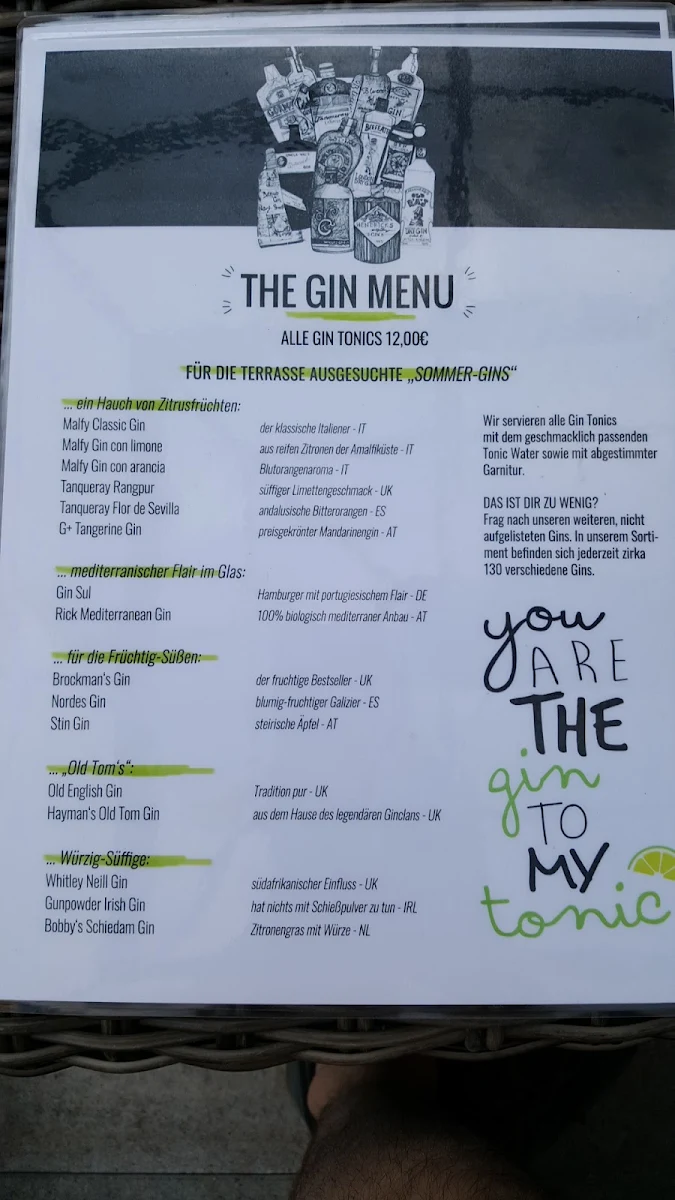 THE GIN MENU
ALLE GIN TONICS 12,00€
FÜR DIE TERRASSE AUSGESUCHTE „SOMMER-GINS“
... ein Hauch von Zitrusfrüchten:
Malfy Classic Gin der klassische Italiener - IT
Malfy Gin con limone aus reifen Zitronen der Amalfiküste - IT
Malfy Gin con arancia Blutorangenaroma - IT
Tanqueray Rangpur süffiger Limettengeschmack - UK
Tanqueray Flor de Sevilla andalusische Bitterorangen - ES
G+ Tangerine Gin preisgekrönter Mandarinengin - AT
... mediterranischer Flair im Glas:
Gin Sul Hamburger mit portugiesischem Flair - DE
Rick Mediterranean Gin 100% biologisch mediterraner Anbau - AT
... für die Früchtig-Süßen:
Brockman's Gin der fruchtige Bestseller - UK
Nordes Gin blumig-fruchtiger Galizier - ES
Stin Gin steirische Äpfel - AT
... „Old Tom's“:
Old English Gin Tradition pur - UK
Hayman's Old Tom Gin aus dem Hause des legendären Ginclans - UK
... Würzig-Süffige:
Whitley Neill Gin südafrikanischer Einfluss - UK
Gunpowder Irish Gin hat nichts mit Schießpulver zu tun - IRL
Bobby's Schiedam Gin Zitronengras mit Würze - NL
Wir servieren alle Gin Tonics
mit dem geschmacklich passenden
Tonic Water sowie mit abgestimmter
Garnitur.
DAS IST DIR ZU WENIG?
Frag nach unseren weiteren, nicht
aufgelisteten Gins. In unserem Sorti-
ment befinden sich jederzeit zirka
130 verschiedene Gins.
you
ARE
THE
gin
TO
MY
tonic
HENDRICK'S
GIN